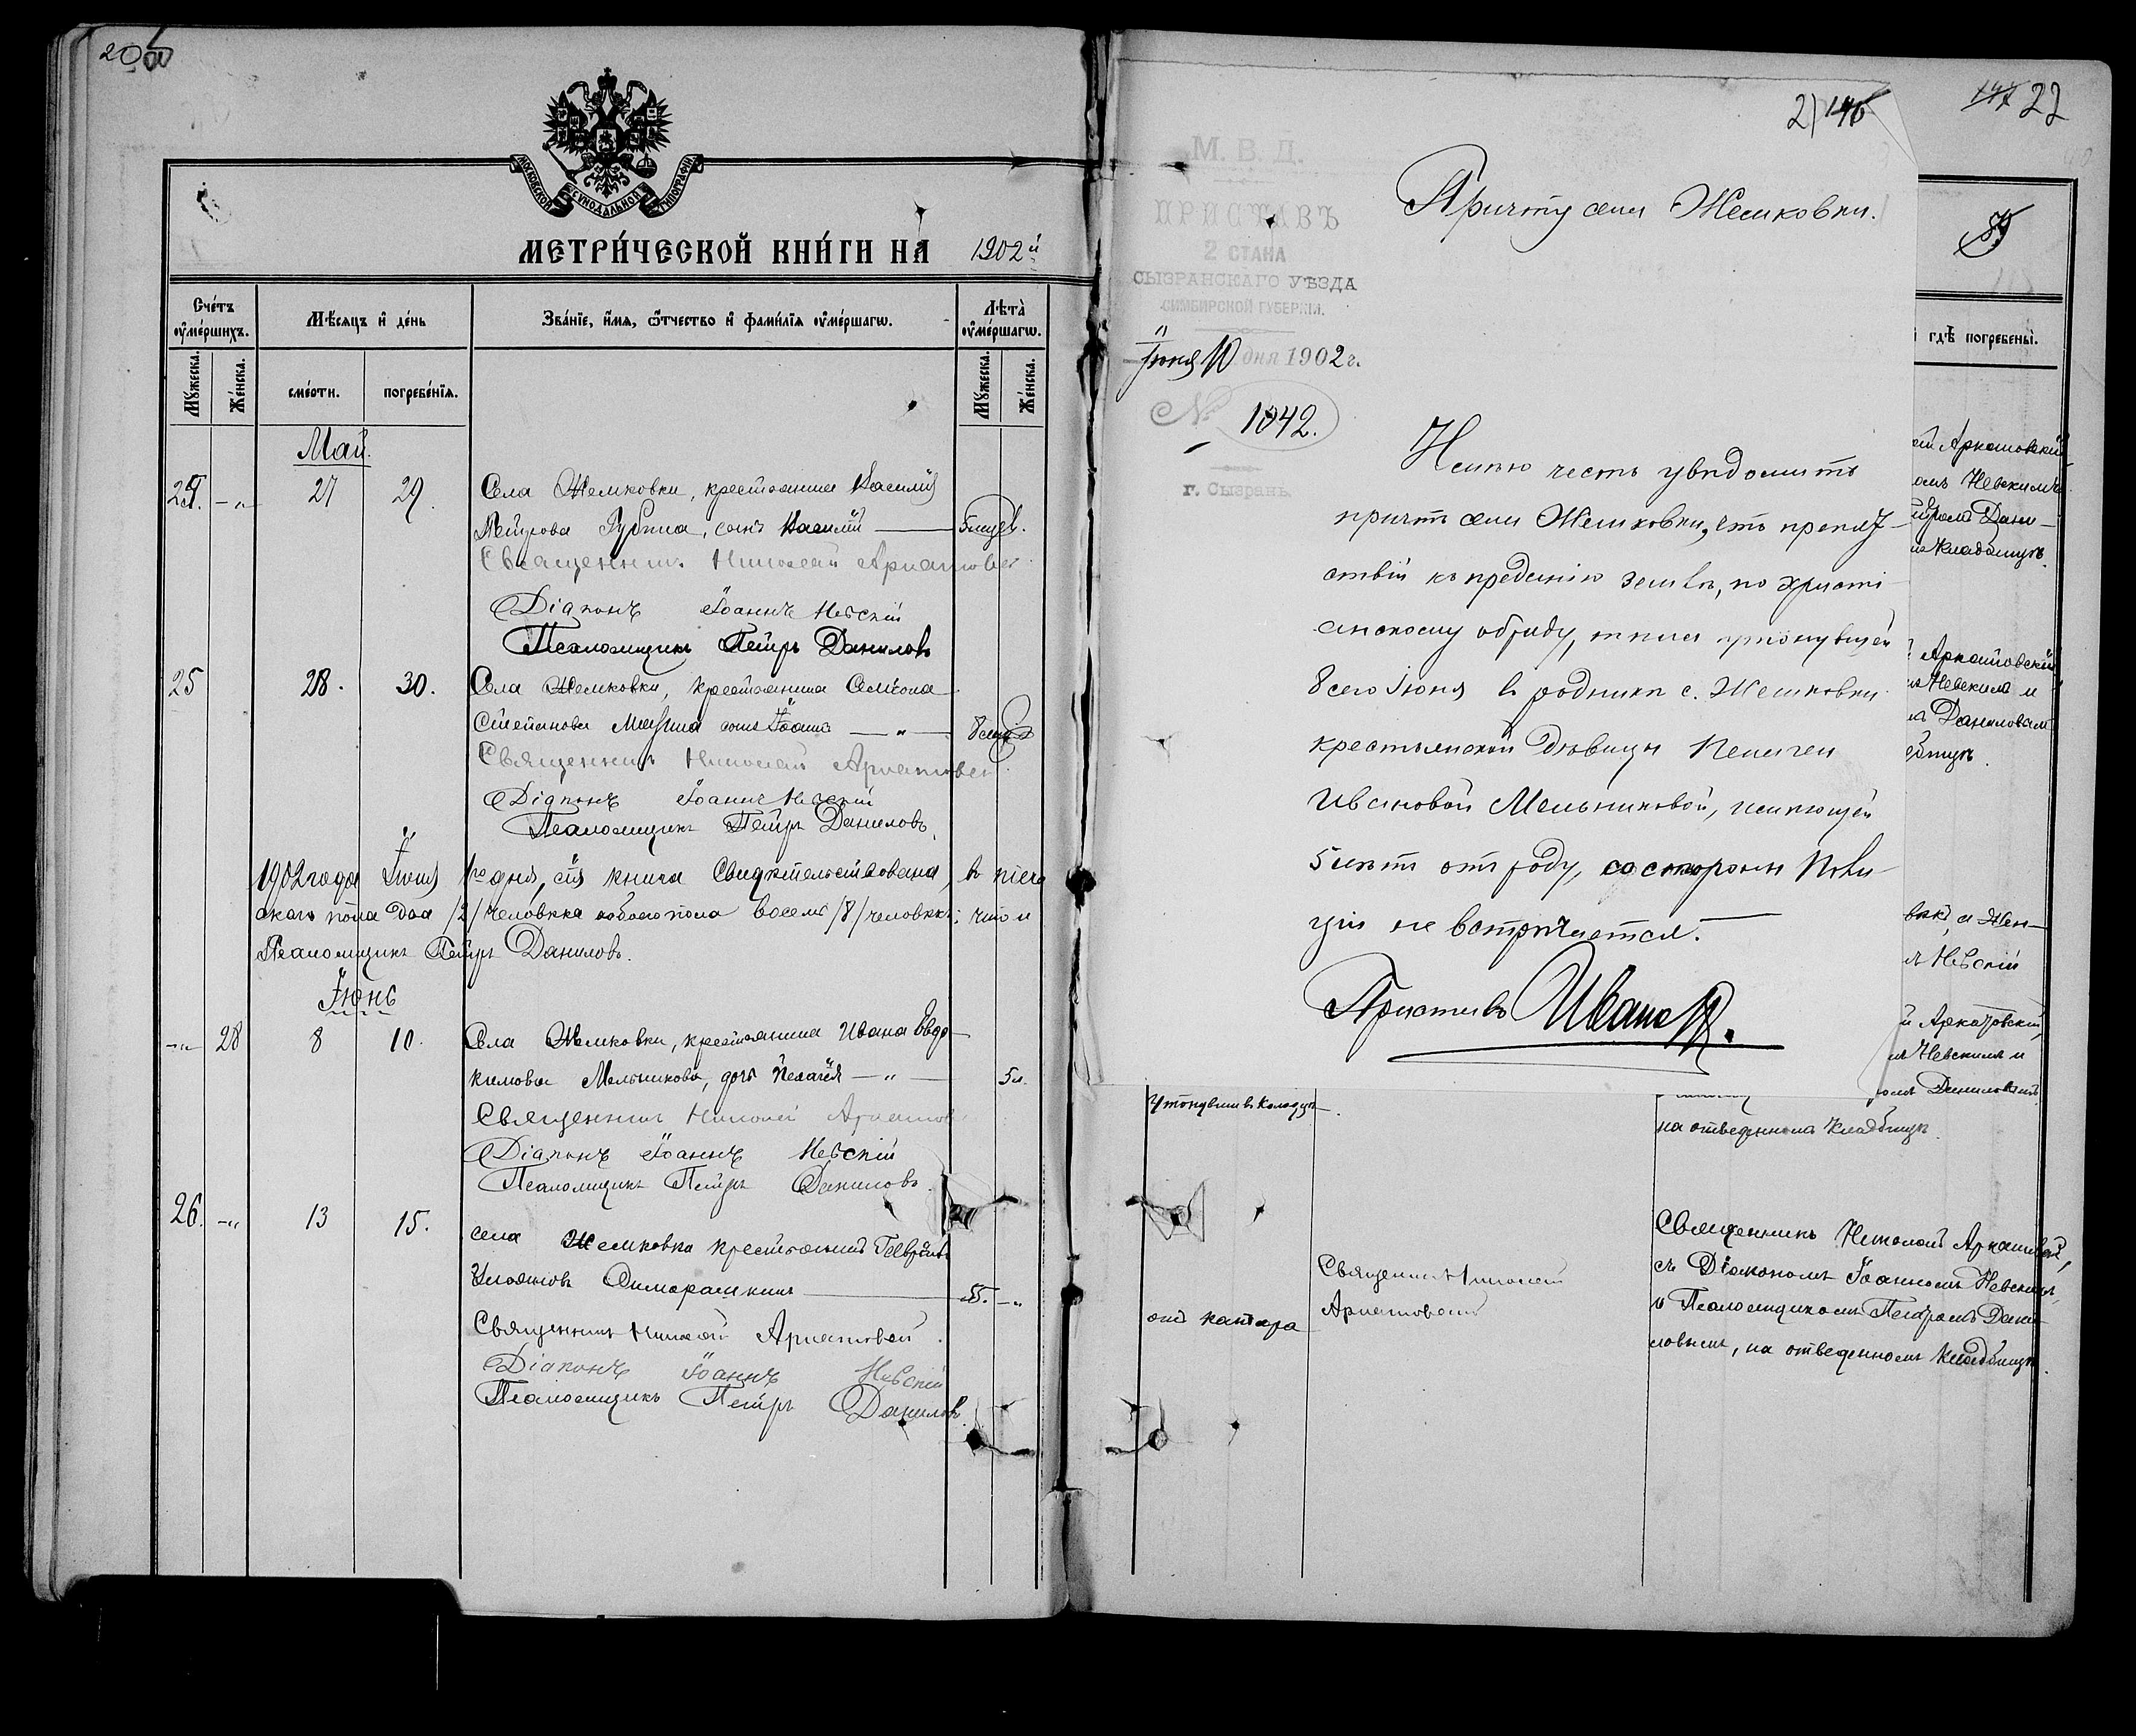 205
МОСКОВСКОЙ СѴНОДАЛЬНОЙ ТИПОГРАФІИ
МЕТРИ́ЧЕСКОЙ КНИ́ГИ НА 1902й
Сче́тъ ᲂу҆ме́ршихъ.
Мѣ́сяцъ и҆ де́нь
Зва́нїе, и҆́мя, ѻ҆́тчество и҆ фами́лїя ᲂу҆ме́ршагѡ.
Лѣта̀ ᲂу҆ме́ршагѡ.
Мꙋ́жеска.
Же́нска.
сме́рти.
погребе́нїя.
Мꙋ́жеска.
Же́нска.
Май.
24. -„- 27 29. Села Жемковки, крестьянина Василія
Петрова Губина, сынъ Василій 5 мцев.
Священникъ Николай Аркатовскій
Діаконъ Іоаннъ Невскій
Псаломщикъ Петръ Даниловъ
25 28. 30. Села Жемковки, крестьянина Самсона
Степанова сынъ Іоаннъ —„—
Священникъ Николай Аркатовскій
Діаконъ Іоаннъ Невскій
Псаломщикъ Петръ Даниловъ.
1902 года Іюня 1го дня, сія книга Свидѣтельствована, въ
скаго пола два /2/ человѣка обоего пола восемь /8/ человѣкъ; что и
Псаломщикъ Петръ Даниловъ.
Іюнь
-„- 28 8 10. Села Жемковки, крестьянина Ивана Евдо-
кимова Мельникова, дочь Пелагія —„— 5л.
Священникъ Николай Аркатов
Діаконъ Іоаннъ Невскій
Псаломщикъ Петръ Даниловъ.
26. -„- 13 15. села Жемковки крестьянинъ Гавріилъ
Симдрашкинъ 55. -„-
Священникъ Николай Аркатовскій.
Діаконъ Іоаннъ Невскій
Псаломщикъ Петръ Даниловъ.
2) 146
147 22
М. В. Д.
ПРИСТАВЪ
2 СТАНА
СЫЗРАНСКАГО УѢЗДА
СИМБИРСКОЙ ГУБЕРНІИ.
Іюня 10 дня 1902 г.
№ 1042.
г. Сызрань.
Причту села Жемковки.
Имѣю честь увѣдомить
причтъ села Жемковки, что препят-
ствій къ преданію землѣ, по христі
анскому обряду, тѣла утонувшей
8 сего Іюня въ родникѣ с. Жемковки
крестьянской дѣвицы Пелагеи
Ивановой Мельниковой, имѣющей
5 лѣтъ отъ роду, со стороны Поли-
ціи не встрѣчается.
Приставъ Ивановъ.
гдѣ погребены̀.
Аркатовскій
Невскимъ
Дани-
кладбищѣ.
Аркатовскій
Невскимъ и
Даниловымъ
а жен-
Невскій
й Аркатовскій
Невскимъ и
Даниловымъ
Утонувши въ колодцѣ.
на отведенномъ кладбищѣ.
отъ катара
Священникъ Николай
Аркатовскій
Священникъ Николай Аркатовскій,
съ Діакономъ Іоанномъ Невскимъ
и Псаломщикомъ Петромъ Дани-
ловымъ, на отведенномъ кладбищѣ.